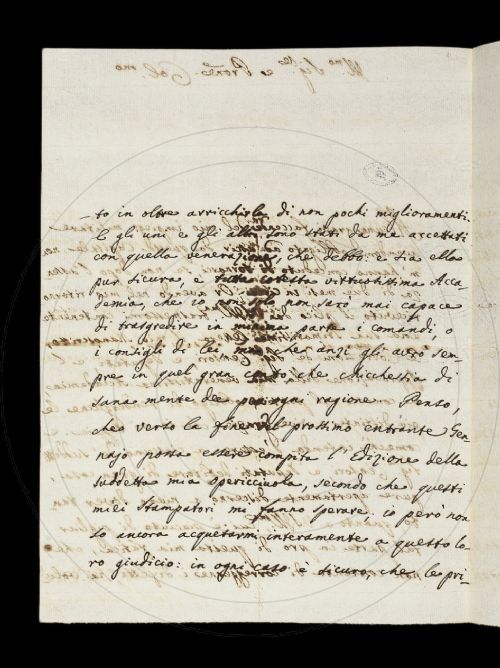 -to in oltre arricchirla di non pochi miglioramenti.
E gli uni e gli altri sono stati da me accettati
con quella venerazione, che debbo, e sia ella
pur sicura, e tutta cotesta virtuosissima Acca-
demia che io non solo non sarò mai capace
di trasgredire in minima parte i comandi, o
i consigli di Lei, ma che anzi gli avrò sem
pre in quel gran conto che chicchessia di
sana mente dee per ogni ragione. Penso,
che verso la fine del prossimo entrante Gen
najo possa essere compita l'Edizione della
suddetta mia opericciuola, secondo che questi
miei Stampatori mi fanno sperare: io però non
so ancora acquetarmi interamente a questo lo-
ro giudicio: in ogni caso è sicuro, che le pri-